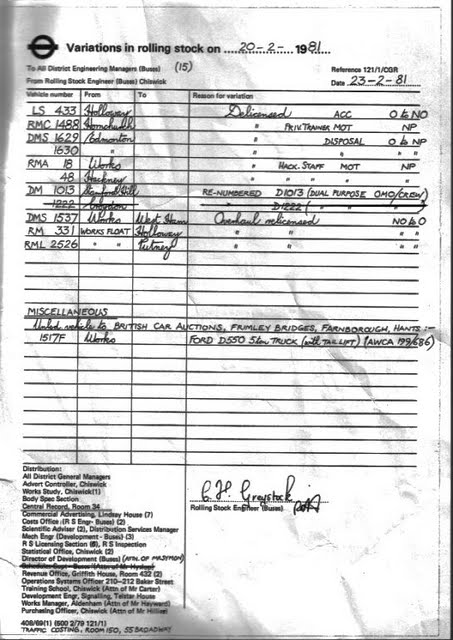 Variations in rolling stock on 20-2- 1981
To All District Engineering Managers (Buses) (15) Reference 121/1/CGR
From Rolling Stock Engineer (Buses) Chiswick Date 23-2-81
Vehicle number From To Reason for variation
LS 433 Holloway Delicensed ACC O to NO
RMC 1488 Hornchurch " PRIV. TRAINER MOT NP
DMS 1629 Edmonton " DISPOSAL O to NP
1630 " " " "
RMA 18 Works " HACK. STAFF MOT NP
48 Hackney " " " " "
DM 1013 Stamford Hill RE-NUMBERED D1013 (DUAL PURPOSE OMO/CREW)
1222 Croydon " D1222 ( "
DMS 1537 Works West Ham Overhaul relicensed NO to O
RM 331 WORKS FLOAT Holloway " " "
RML 2526 " " Putney " " "
MISCELLANEOUS
vehicle to BRITISH CAR AUCTIONS, FRIMLEY BRIDGES, FARNBOROUGH, HANTS :-
1517F Works FORD D550 5 ton TRUCK (with TAIL LIFT) (AWCA 199/686)
Distribution:
All District General Managers
Advert Controller, Chiswick
Works Study, Chiswick(1)
Body Spec Section
Central Record, Room 34
Commercial Advertising, Lindsay House (7)
Costs Office (R S Engr- Buses) (2)
Scientific Adviser (2), Distribution Services Manager
Mech Engr (Development - Buses) (3)
R S Licensing Section (6), R S Inspection
Statistical Office, Chiswick (2)
Director of Development (Buses) (ATTN. OF
Revenue Office, Griffith House, Room 432 (2)
Operations Systems Officer 210-212 Baker Street
Training School, Chiswick (Attn of Mr Carter)
Development Engr, Signalling, Telstar House
Works Manager, Aldenham (Attn of Mr Hayward)
Purchasing Officer, Chiswick (Attn of Mr Hillier)
408/69(1) (500 2/79 121/1)
TRAFFIC COSTING, ROOM 150, 55 BROADWAY
C. H. Greystock
Rolling Stock Engineer (Buses)